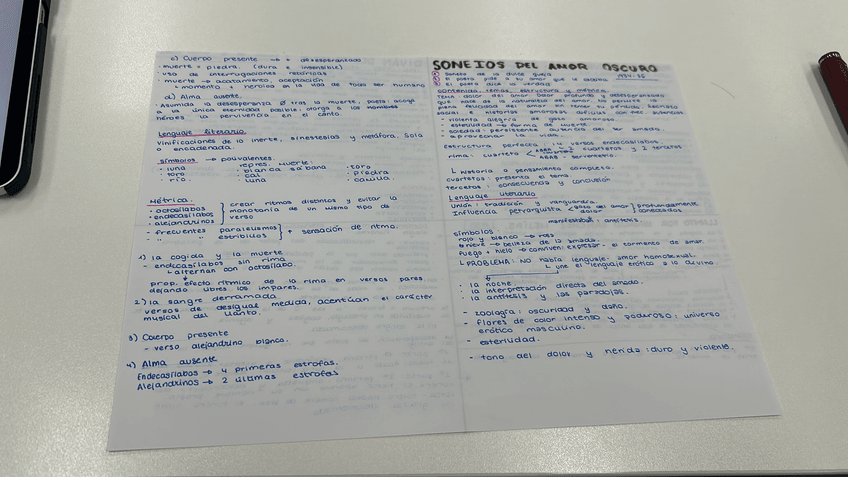 c) Cuerpo presente → + desesperanzado
· muerte = piedra (dura e insensible)
· uso de interrogaciones retóricas
· muerte → acatamiento, aceptación
↳ momento + heroico en la vida de todo ser humano
d) Alma ausente.
· Asumida la desesperanza tras la muerte, poeta: acoge
a la única eternidad posible: otorga a los hombres
héroes la pervivencia en el canto.
Lenguaje literario
Vivificaciones de lo inerte, sinestesias y metáfora. Sola
o encadenada.
símbolos → polivalentes.
· luna
· toro
· río.
repres. muerte:
· blanca sábana
· cal
· luna
· toro
· piedra
Métrica.
· octosílabos
· endecasílabos
· alejandrinos
crear ritmos distintos y evitar la
monotonía de un mismo tipo de
verso
- frecuentes paralelismos
" estribillos
+ sensación de ritmo.
1) la cogida y la muerte
- endecasílabos sin rima
↳ alternan con octosílabo.
prop. efecto rítmico de la rima en versos pares
dejando libres los impares.
2) la sangre derramada
versos de desigual medida, acentúan el carácter
musical del llanto.
3) Cuerpo presente
- verso alejandrino blanco.
4) Alma ausente
Endecasílabos → 4 primeras estrofas.
Alejandrinos → 2 últimas estrofas
SONETOS DEL AMOR OSCURO
1934-35
Soneto de la dulce queja
El poeta pide a su amor que le escriba
El poeta dice la verdad
contenido, temas, estructura y métrica
- violenta alegría de gozo amoroso
- esterilidad → forma de muerte
- soledad: persistente ausencia del ser amado.
- aprovechar la vida.
Estructura perfecta: 14 versos endecasílabos
2 cuartetos y 2 tercetos
rima: cuarteto < ABBA
ABAB - serventesio.
↳ Historia o pensamiento completo.
cuartetos: presenta el tema.
tercetos: consecuencia y conclusión
Lenguaje literario
Unión: tradición y vanguardia.
Influencia petrarquista < gozo del amor
dolor
profundamente
conectados
manifestado: antítesis.
símbolos
rojo y blanco → rosa
nieve → belleza de la amada.
fuego + hielo → conviven: expresar el tormento de amar.
↳ PROBLEMA: NO había lenguaje amor homosexual.
↳ une el lenguaje erótico a lo divino
· la noche.
· la interpretación directa del amado.
· la antítesis y las paradojas.
- zoología: oscuridad y daño.
- flores de color intenso y poderoso: universo
erótico masculino.
- esterilidad.
- tono del dolor y herida: duro y violento.